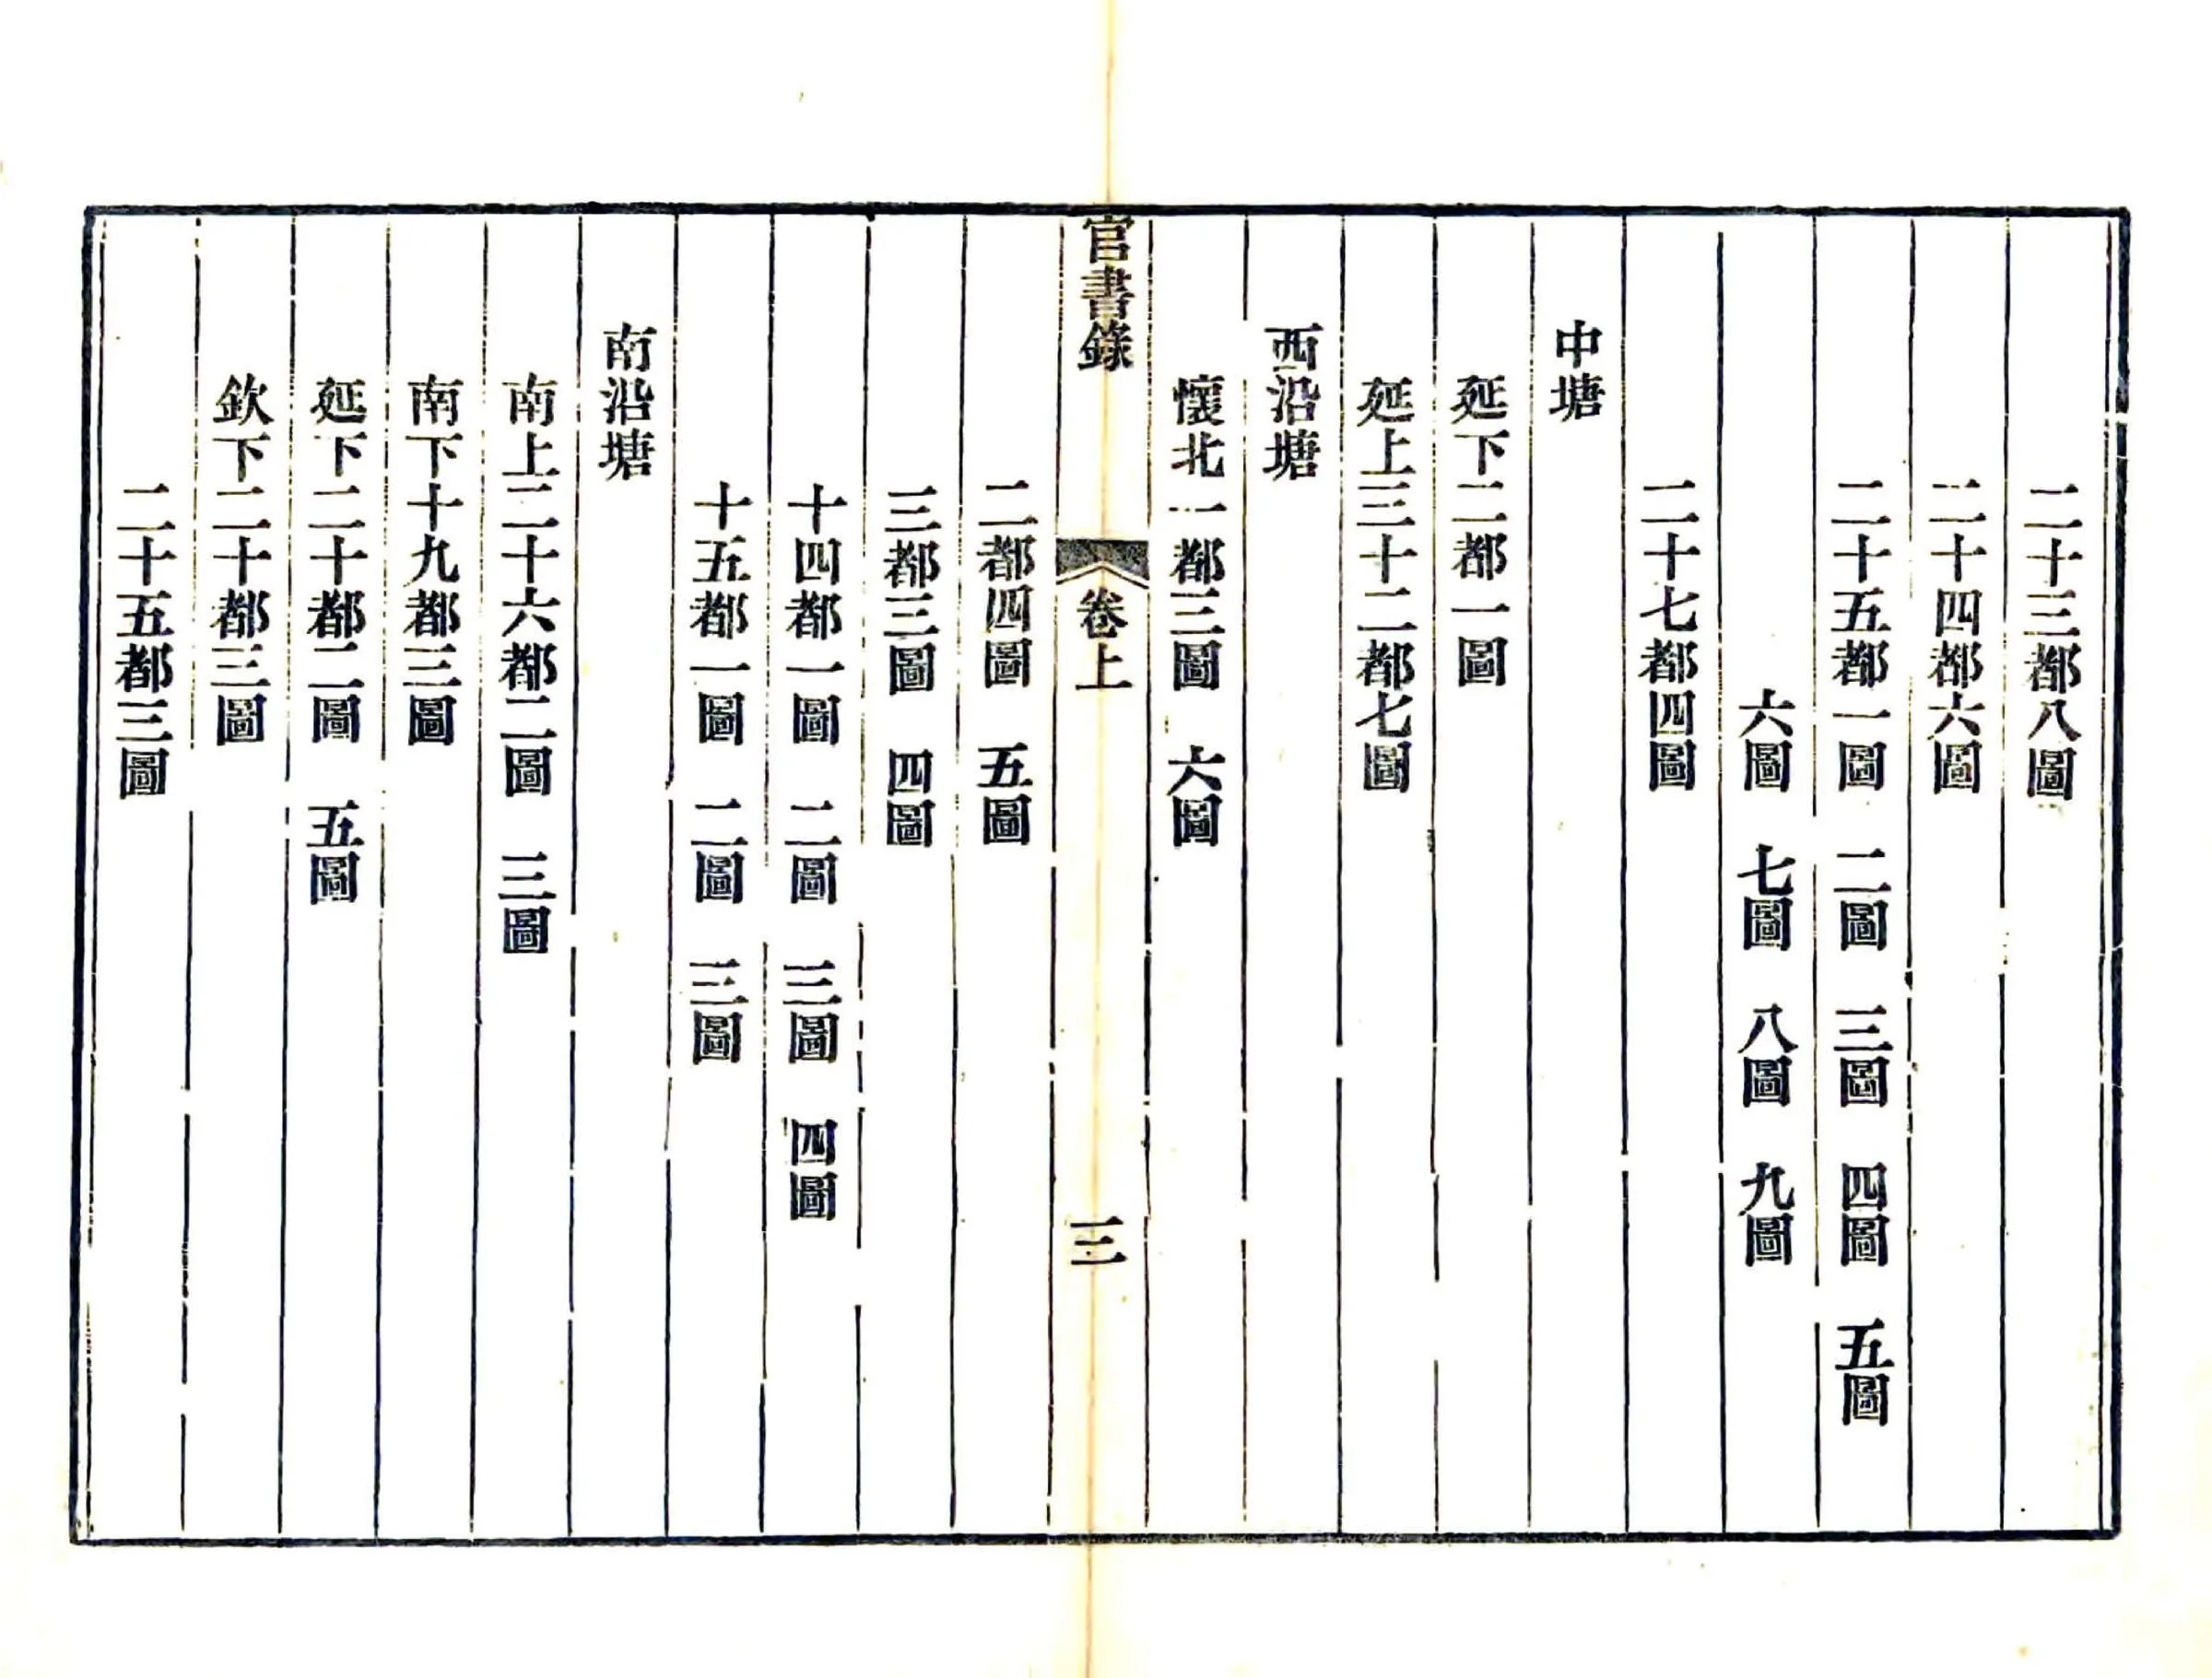 二十三都八圖
二十四都六圖
二十五都一圖　二圖　三圖　四圖　五圖
六圖　七圖　八圖　九圖
二十七都四圖
中塘
延下二都一圖
延上三十二都七圖
西沿塘
懷北一都三圖　六圖
官書錄　卷上　三
二都四圖　五圖
三都三圖　四圖
十四都一圖　二圖　三圖　四圖
十五都一圖　二圖　三圖
南沿塘
南上二十六都二圖　三圖
南下十九都三圖
延下二十都二圖　五圖
欽下二十都三圖
二十五都三圖